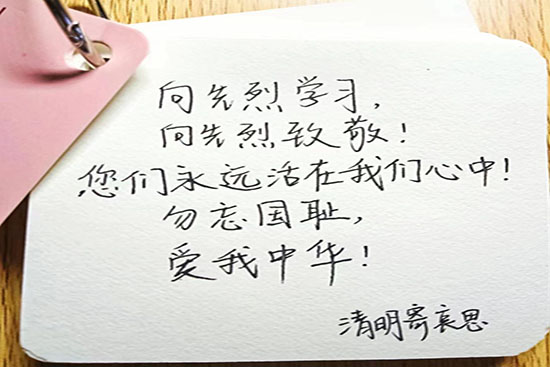 向先烈学习,
向先烈致敬!
您们永远活在我们心中!
勿忘国耻,
爱我中华!
清明寄哀思